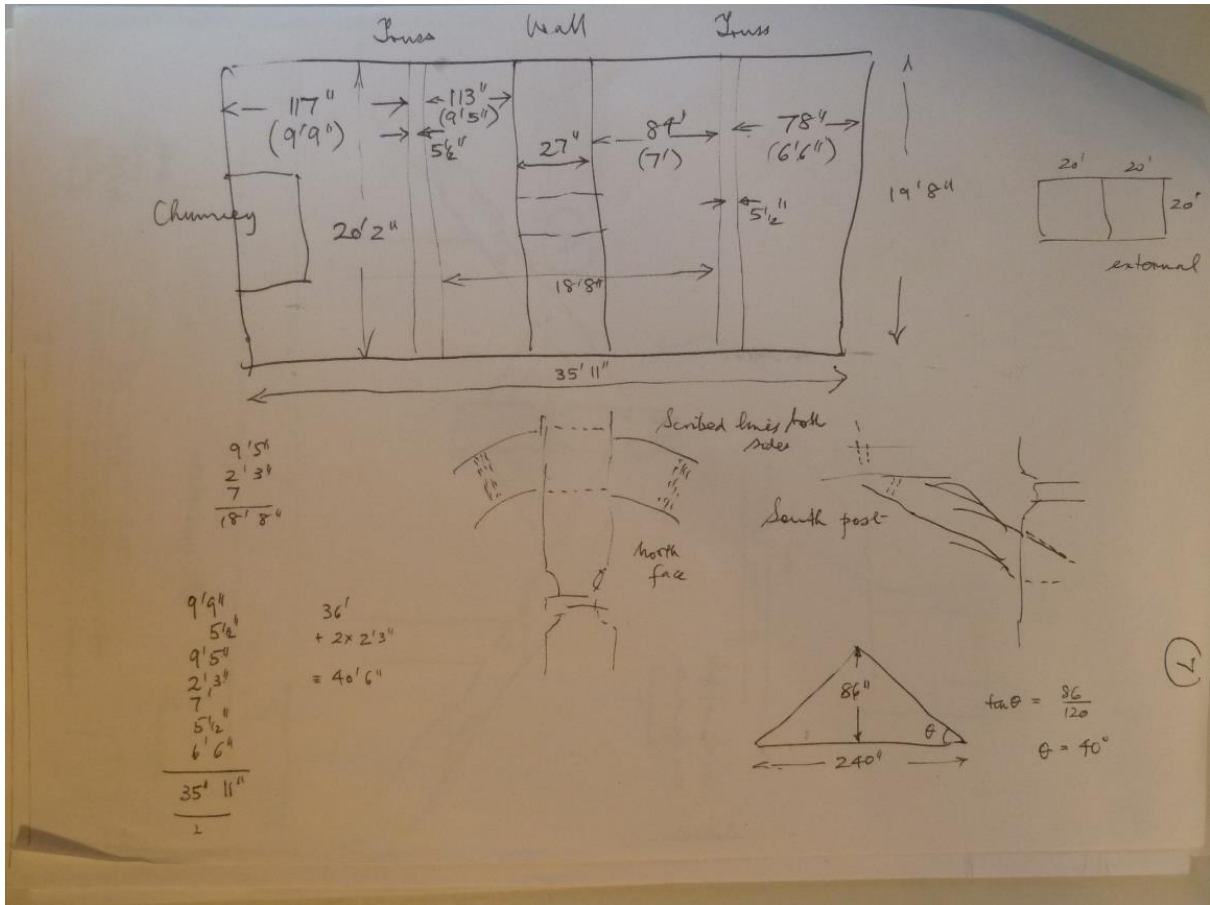 Truss Wall Truss
117" 113" 84' 78"
(9'9") (9'5") (7') (6'6")
5½" 27" 5½"
Chimney
20'2"
19'8"
18'8"
35'11"
20' 20'
20'
external
9'5"
2'3"
7
18'8"
Scribed lines both
sides
north
face
South post
9'9"
5½"
9'5"
2'3"
7'
5½"
6'6"
35' 11"
2
36'
+ 2x 2'3"
= 40'6"
86"
θ
240"
tan θ = 86
120
θ = 40°